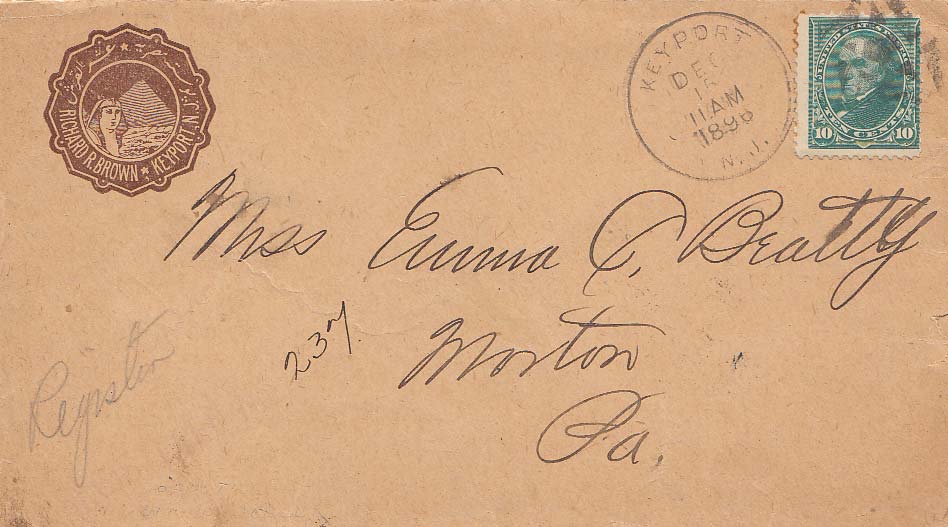 RICHARD R. BROWN ★ KEYPORT N.J.
KEYPORT
DEC
11AM
1896
N.J.
UNITED STATES OF AMERICA
10 TEN CENTS 10
Miss Emma C. Beatty
237
Morton
Pa.
Register